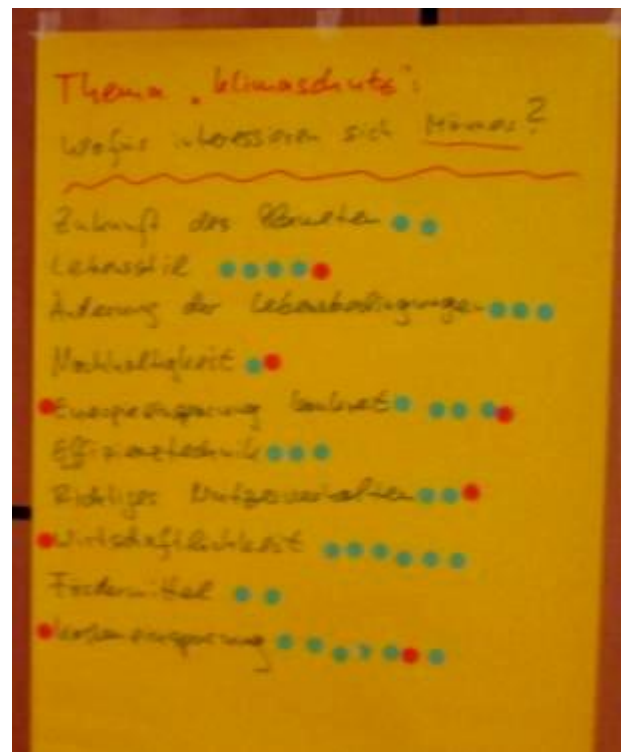 Thema „Klimaschutz“:
Wofür interessieren sich Männer?
Zukunft des Planeten
Lebensstil
Änderung der Lebensbedingungen
Nachhaltigkeit
Energieeinsparung konkret
Effizienztechnik
Richtiges Nutzerverhalten
Wirtschaftlichkeit
Fördermittel
Kosteneinsparung